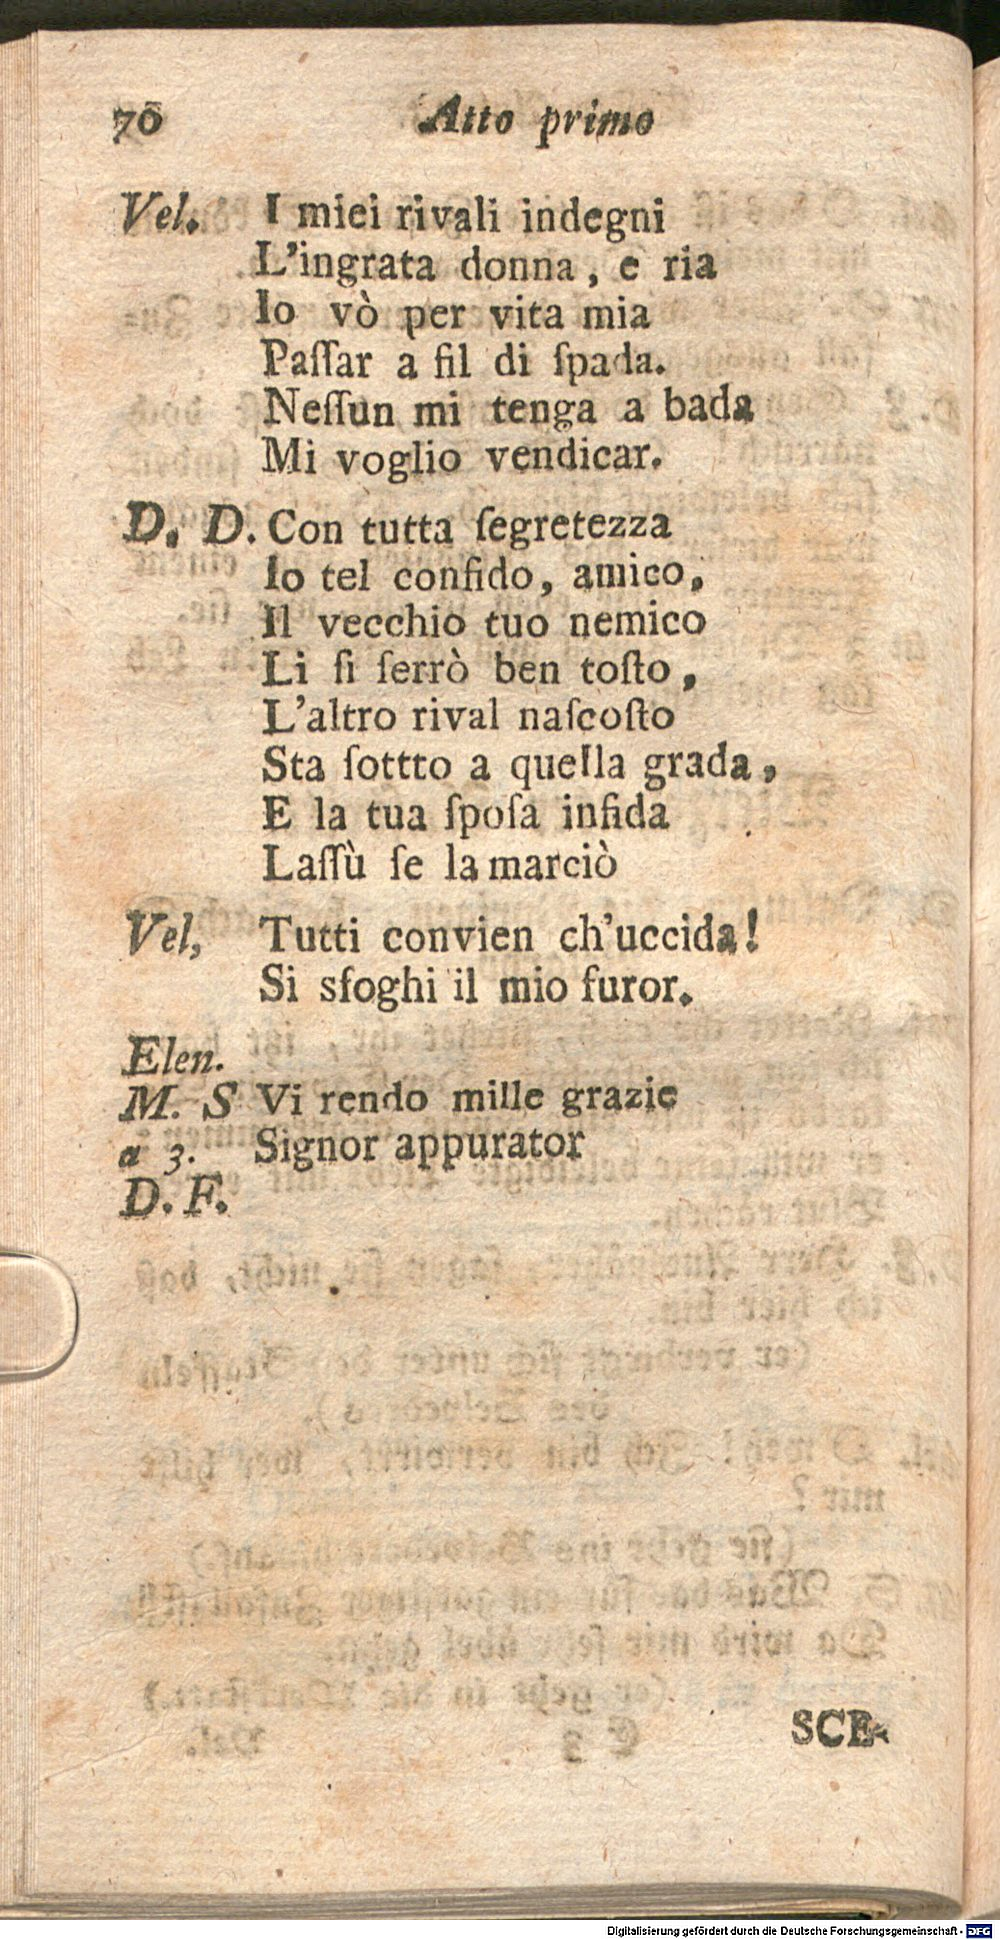 70 Atto primo
Vel. I miei rivali indegni
L'ingrata donna, e ria
Io vò per vita mia
Paſſar a fil di ſpada.
Neſſun mi tenga a bada
Mi voglio vendicar.
D. D. Con tutta ſegretezza
Io tel confido, amico,
Il vecchio tuo nemico
Li ſi ſerrò ben toſto,
L'altro rival naſcoſto
Sta ſottto a quella grada,
E la tua ſpoſa infida
Laſſù ſe la marciò
Vel, Tutti convien ch'uccida!
Si sfoghi il mio furor.
Elen.
M. S Vi rendo mille grazie
a 3. Signor appurator
D. F.
SCE-
Digitalisierung gefördert durch die Deutsche Forschungsgemeinschaft - DFG